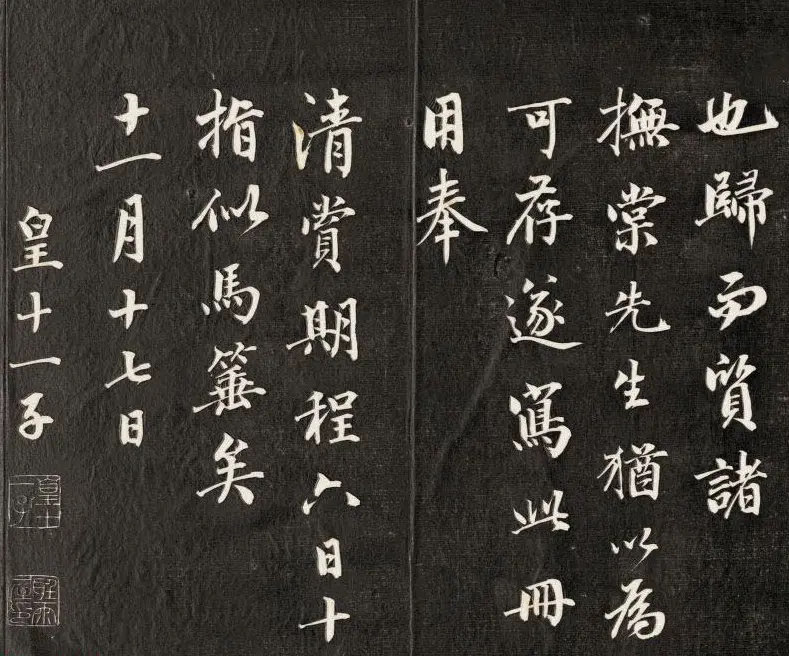 也歸而質諸
撫棠先生猶以為
可存遂寫此冊
用奉
清賞期程六日十
指似馬箠矣
十一月十七日
皇十一子
皇十一子